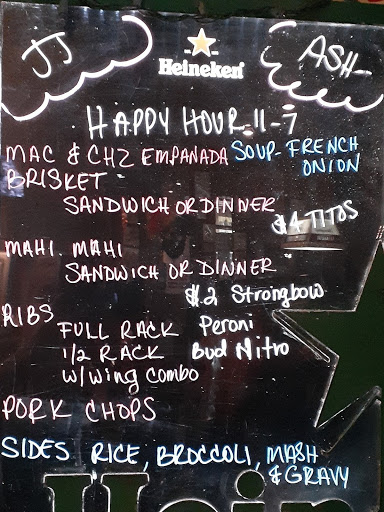 JJ
Heineken
ASH-
HAPPY HOUR-11-7
MAC & CHZ EMPANADA SOUP-FRENCH ONION
BRISKET
SANDWICH OR DINNER
$4 TITOS
MAHI MAHI
SANDWICH OR DINNER
$2 Strongbow
RIBS
FULL RACK Peroni
1/2 RACK Bud Nitro
W/Wing Combo
PORK CHOPS
SIDES RICE, BROCCOLI, MASH & GRAVY